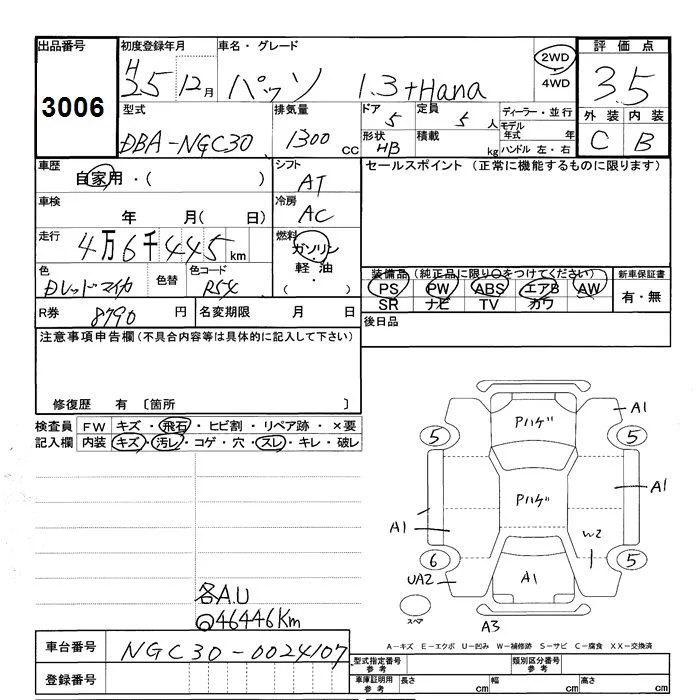 出品番号 初度登録年月 車名・グレード 2WD 4WD 評価点
3006 H25 12月 パッソ 1.3+Hana 3.5
型式 排気量 ドア 5 定員 5人 ディーラー・並行 外装 内装
DBA-NGC30 1300cc 形状 HB 積載 kg モデル年式 年 ハンドル 左・右 C B
車歴 自家用・( ) シフト AT セールスポイント (正常に機能するものに限ります)
車検 年 月( 日) 冷房 AC
走行 4万6千445km 燃料 ガソリン 軽油・( )
色 Dレッドマイカ 色替 色コード R54 装備品(純正品に限り○をつけてください) 新車保証書
PS PW ABS エアB AW 有・無
SR ナビ TV カワ
R券 8790円 名変期限 月 日 後日品
注意事項申告欄(不具合内容等は具体的に記入して下さい)
修復歴 有 〔箇所 〕
検査員 FW キズ・飛石・ヒビ割・リペア跡・×要
記入欄 内装 キズ・汚レ・コゲ・穴・スレ・キレ・破レ
Pハゲ
A1
5
5
Pハゲ
A1
A1
W2
6
5
UA2
A1
スペア
A3
各A.U
46446Km
A-キズ E-エクボ U-凹み W-補修跡 S-サビ C-腐食 XX-交換済
車台番号 NGC30-0024107
型式指定番号 参考 類別区分番号 参考
登録番号
車庫証明用 参考 長さ cm 幅 cm 高さ cm